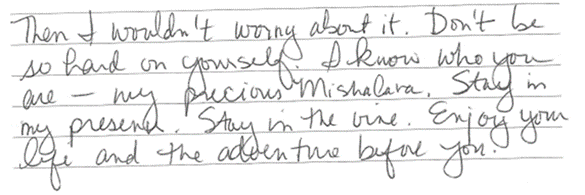 Then I wouldn't worry about it. Don't be
so hard on yourself. I know who you
are – my precious Mishalara. Stay in
my presence. Stay in the vine. Enjoy your
life and the adventure before you.